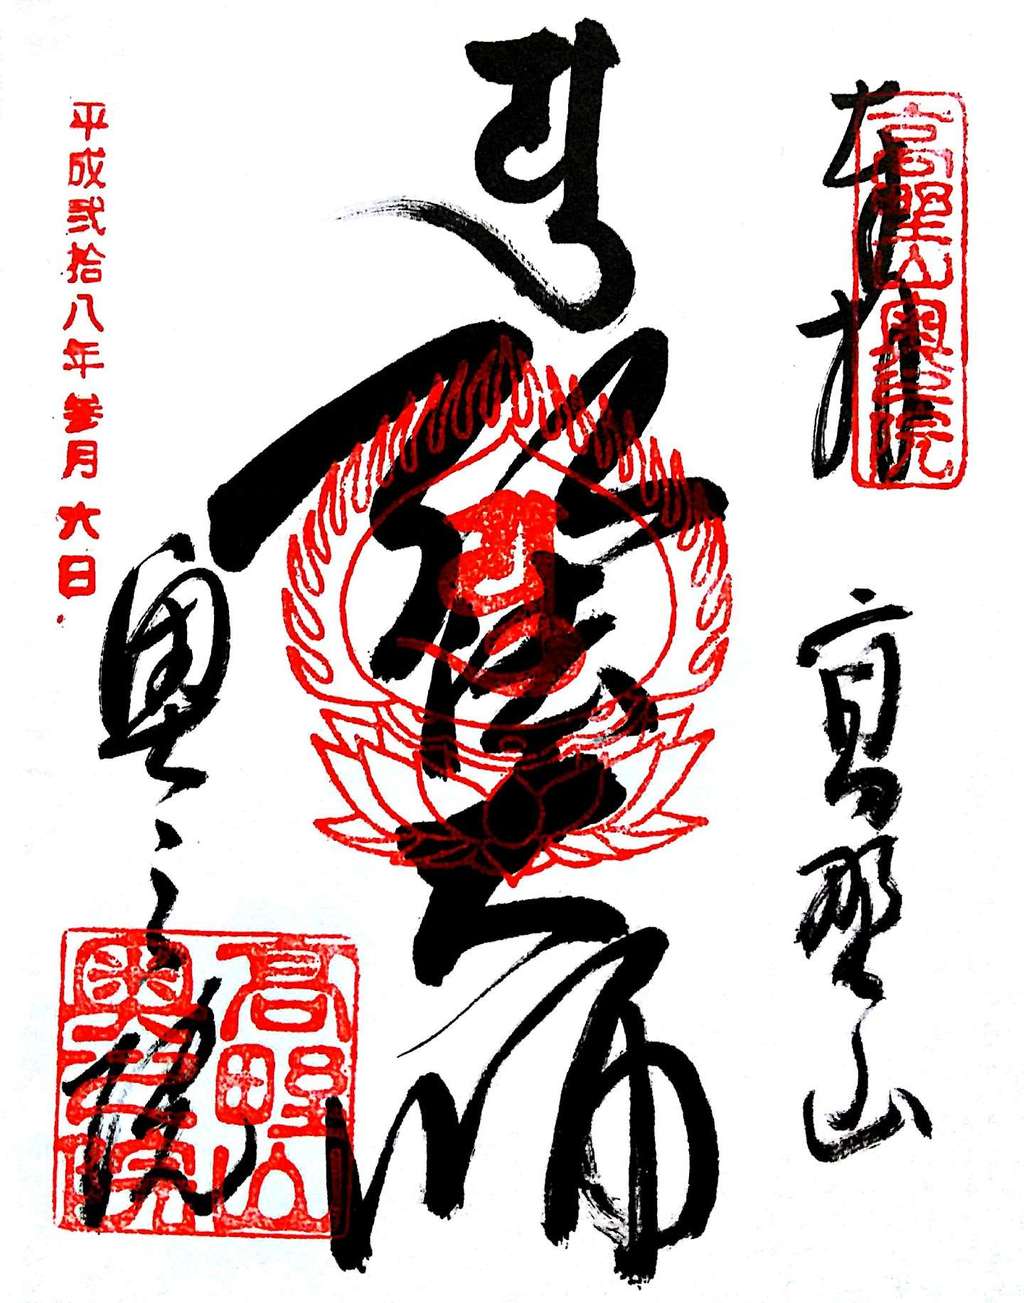 奉拝
高野山奥之院
高野山
弘法大師
奥之院
高野山
奥之院
平成弐拾八年参月六日